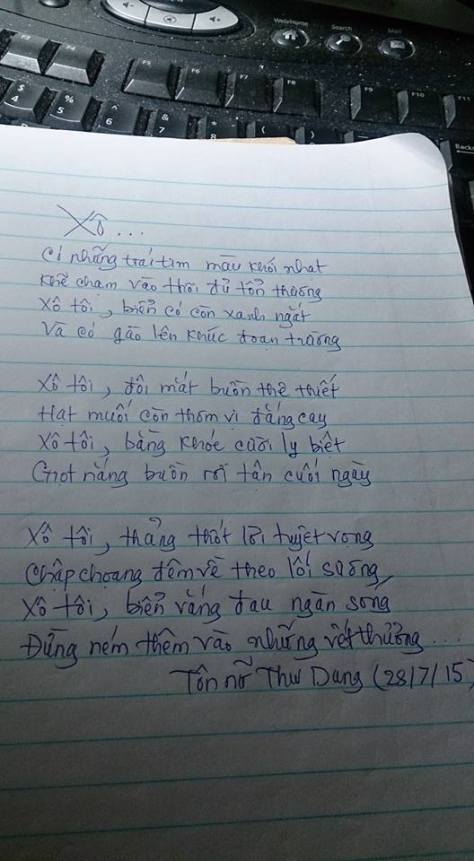 Web/Home Search Mail
F5 F6 F7 F8 F9 F10 F11
$ 4 % 5 ^ 6 & 7 * 8 ( ) Backs
Xô...
Có những trái tim màu khói nhạt
Khẽ chạm vào thôi đủ tổn thương
Xô tôi, biển có còn xanh ngắt
Và có gào lên khúc đoạn trường
Xô tôi, đôi mắt buồn thê thiết
Hạt muối còn thơm vị đắng cay
Xô tôi, bằng khóc cười ly biệt
Giọt nắng buồn rơi tận cuối ngày
Xô tôi, thảng thốt lời tuyệt vọng
Chập choạng đêm về theo lối sương
Xô tôi, biển vắng đau ngàn sóng
Đừng ném thêm vào những vết thương...
Tôn nữ Thu Dung (28/7/15)